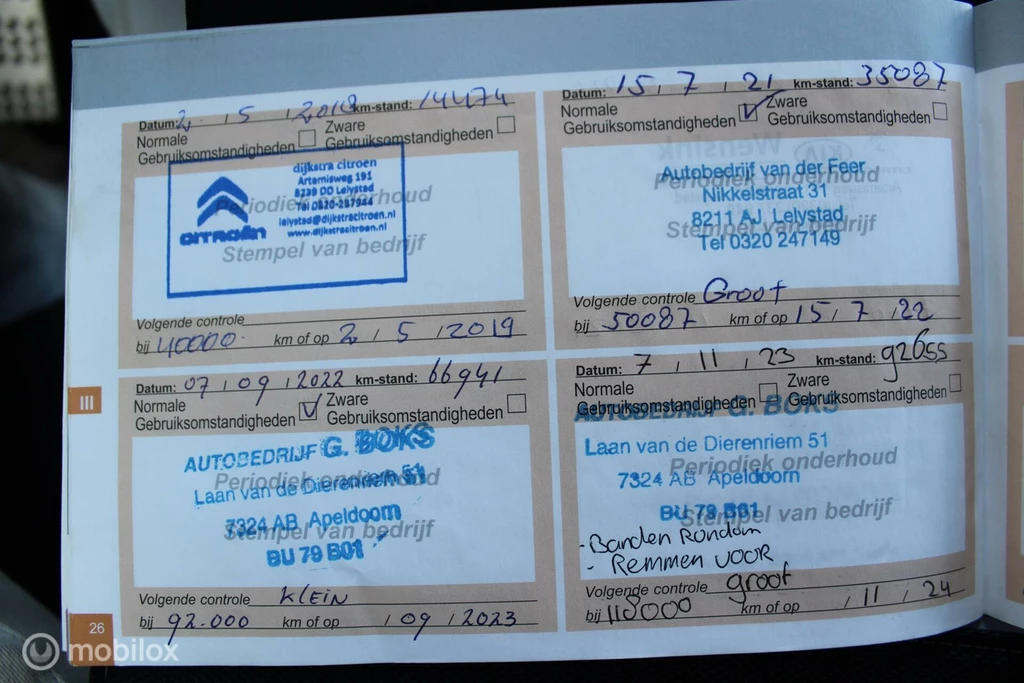 Datum: 2 / 5 / 2018 km-stand: 14474
Normale Gebruiksomstandigheden
Zware Gebruiksomstandigheden
dijkstra citroen
Artemisweg 191
8239 DD Lelystad
Tel 0320-257944
lelystad@dijkstracitroen.nl
www.dijkstracitroen.nl
CITROËN
Periodiek onderhoud
Stempel van bedrijf
Volgende controle
bij 40000 km of op 2 / 5 / 2019
Datum: 15 / 7 / 21 km-stand: 35087
Normale Gebruiksomstandigheden
Zware Gebruiksomstandigheden
Wensink
KIA
Autobedrijf van der Feer
Periodiek onderhoud
Nikkelstraat 31
8211 AJ Lelystad
Stempel van bedrijf
Tel 0320 247149
Volgende controle Groot
bij 50087 km of op 15 / 7 / 22
Datum: 07 / 09 / 2022 km-stand: 66941
Normale Gebruiksomstandigheden
Zware Gebruiksomstandigheden
AUTOBEDRIJF G. BOKS
Periodiek onderhoud
Laan van de Dierenriem 51
7324 AB Apeldoorn
Stempel van bedrijf
BU 79 B01
Volgende controle KLEIN
bij 92.000 km of op / 09 / 2023
Datum: 7 / 11 / 23 km-stand: 92655
Normale Gebruiksomstandigheden
Zware Gebruiksomstandigheden
AUTOBEDRIJF G. BOKS
Laan van de Dierenriem 51
Periodiek onderhoud
7324 AB Apeldoorn
BU 79 B01
Stempel van bedrijf
- Banden Rondom
- Remmen voor
Volgende controle groot
bij 118000 km of op / 11 / 24
III
26
mobilox